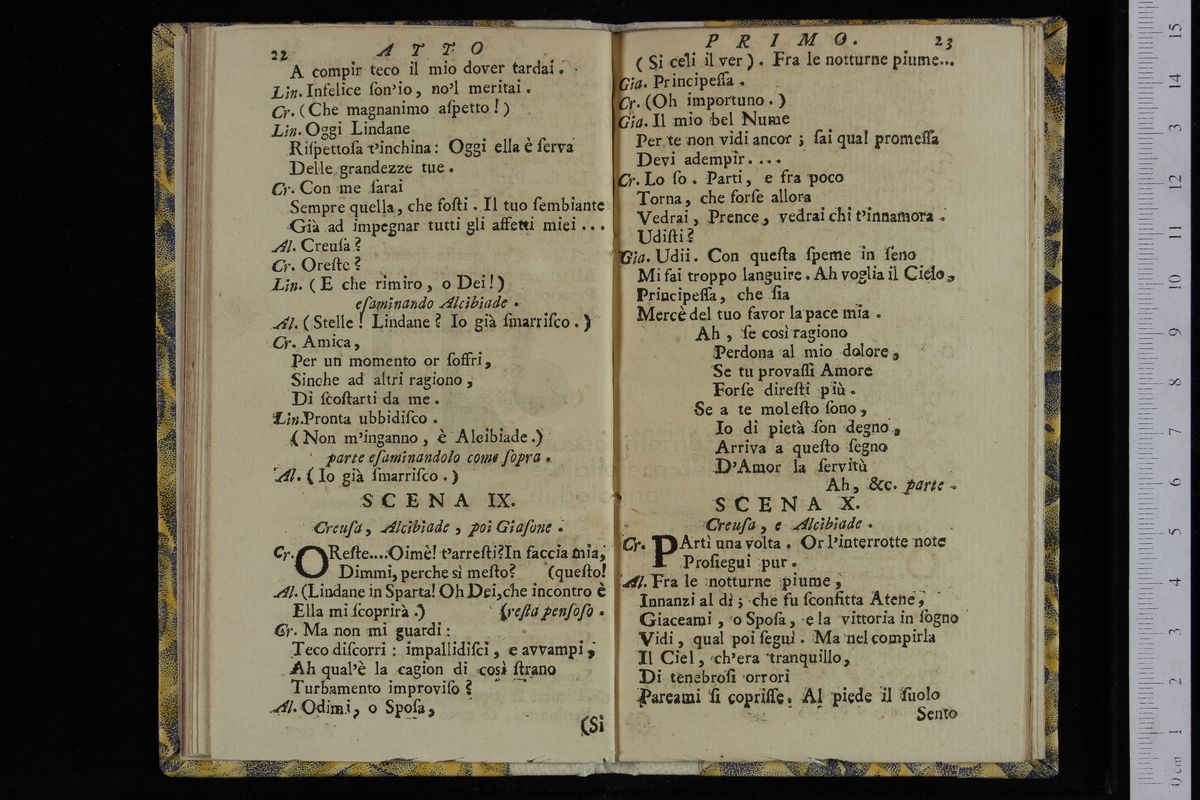 22 ATTO
A compir teco il mio dover tardai.
Lin. Infelice ſon'io, no'l meritai.
Cr. (Che magnanimo aſpetto!)
Lin. Oggi Lindane
Riſpettoſa t'inchina: Oggi ella è ſerva
Delle grandezze tue.
Cr. Con me ſarai
Sempre quella, che foſti. Il tuo ſembiante
Già ad impegnar tutti gli affetti miei...
Al. Creuſa?
Cr. Oreſte?
Lin. (E che rimiro, o Dei!)
eſaminando Alcibiade.
Al. (Stelle! Lindane? Io già ſmarriſco.)
Cr. Amica,
Per un momento or ſoffri,
Sinche ad altri ragiono,
Di ſcoſtarti da me.
Lin. Pronta ubbidiſco.
(Non m'inganno, è Alcibiade.)
parte eſaminandolo come ſopra.
Al. (Io già ſmarriſco.)
SCENA IX.
Creuſa, Alcibiade, poi Giaſone.
Cr. OReſte.... Oimè! t'arreſti? In faccia mia,
Dimmi, perche sì meſto? (queſto!
Al. (Lindane in Sparta! Oh Dei, che incontro è
Ella mi ſcoprirà.) (reſta penſoſo.
Cr. Ma non mi guardi:
Teco diſcorri: impallidiſci, e avvampi;
Ah qual'è la cagion di così ſtrano
Turbamento improviſo?
Al. Odimi, o Spoſa,
(Si
PRIMO. 23
(Si celi il ver). Fra le notturne piume...
Gia. Principeſſa.
Cr. (Oh importuno.)
Gia. Il mio bel Nume
Per te non vidi ancor; ſai qual promeſſa
Devi adempir....
Cr. Lo ſo. Parti, e fra poco
Torna, che forſe allora
Vedrai, Prence, vedrai chi t'innamora.
Udiſti?
Gia. Udii. Con queſta ſpeme in ſeno
Mi fai troppo languire. Ah voglia il Cielo,
Principeſſa, che ſia
Mercè del tuo favor la pace mia.
Ah, ſe così ragiono
Perdona al mio dolore,
Se tu provaſſi Amore
Forſe direſti più.
Se a te moleſto ſono,
Io di pietà ſon degno,
Arriva a queſto ſegno
D'Amor la ſervitù
Ah, &c. parte.
SCENA X.
Creuſa, e Alcibiade.
Cr. PArtì una volta. Or l'interrotte note
Proſiegui pur.
Al. Fra le notturne piume,
Innanzi al dì; che fu ſconfitta Atene,
Giaceami, o Spoſa, e la vittoria in ſogno
Vidi, qual poi ſeguì. Ma nel compirla
Il Ciel, ch'era tranquillo,
Di tenebroſi orrori
Pareami ſi copriſſe. Al piede il ſuolo
Sento